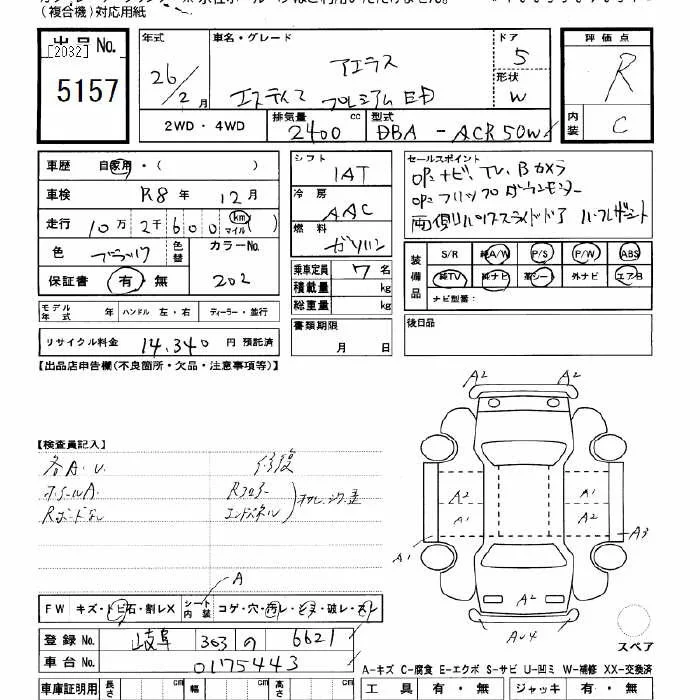 (複合機)対応用紙
出品No. [2032]
5157
年式 26/2月
車名・グレード アエラス
エスティマ プレミアムED
ドア 5
形状 W
評価点 R
内装 C
2WD・4WD
排気量 2400 cc
型式 DBA-ACR50W
車歴 自家用・( )
車検 R8年 12月
走行 10万2千600 km マイル( )
色 ブラック 色替 カラーNo. 202
保証書 有・無
シフト IAT
冷房 AAC
燃料 ガソリン
乗車定員 7名
積載量 kg
総重量 kg
書類期限 月 日
セールスポイント
OP:ナビ、TV、Bカメラ
OP:フリップダウンモニター
両側パワースライドドア ハーフレザーシート
装備品 S/R 純A/W P/S P/W ABS
純TV 純ナビ 革シート 外ナビ エアB
ナビ型番:
後日品
モデル年式 年 ハンドル 左・右 ディーラー・並行
リサイクル料金 14,340 円 預託済
【出品店申告欄(不良箇所・欠品・注意事項等)】
【検査員記入】
各A.U. 修復
ホイールA. Rフロアー
Rボードなし エンドパネル
A
FW キズ・トビ石・割レX シート内装 コゲ・穴・汚レ・ヒヌ・破レ・スレ
登録No. 岐阜 303 の 6621
車台No. 0175443
車庫証明用 長さ cm 幅 cm 高さ cm
A2 A2
A2 A1
A1 A2
A1 A3
A2
AU4
スペア
A-キズ C-腐食 E-エクボ S-サビ U-凹ミ W-補修 XX-交換済
工具 有・無 ジャッキ 有・無